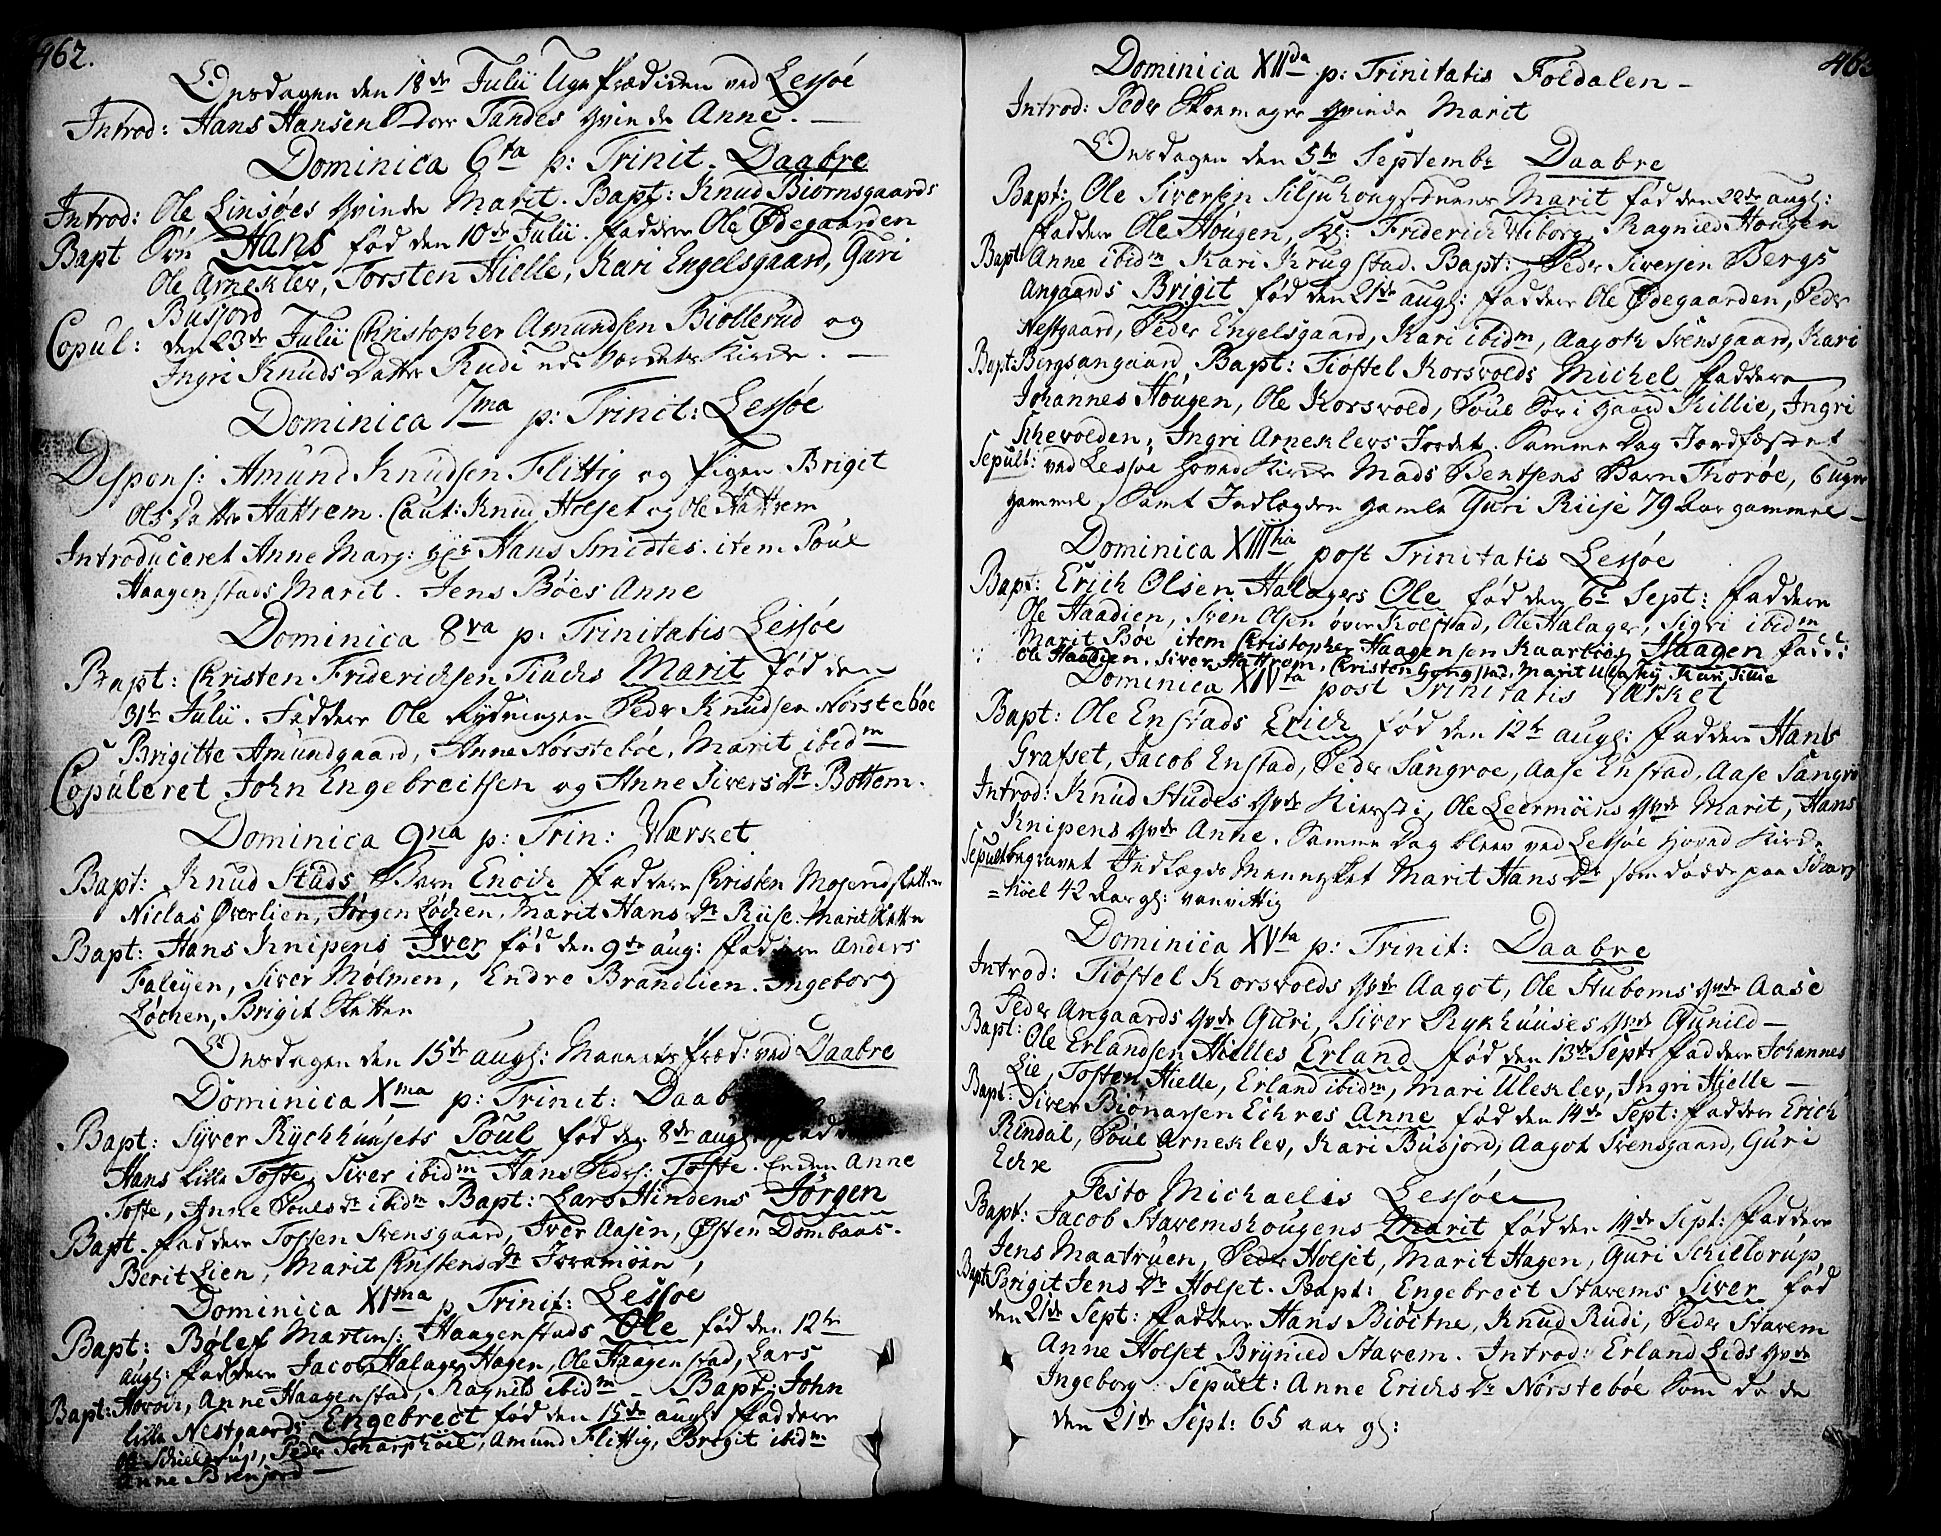 462.
Onsdagen den 18de Julii Uge Prædiken ved Lessøe
Introd: Hans Hansen Tandes Qvinde Anne. —
Dominica 6ta p: Trinit. Daabre
Introd: Ole Linsøes Qvinde Marit. Bapt: Knud Biornsgaards
Bapt Søn Hans fød den 10de Julii. Faddere Ole Ødegaarden
Ole Arneklev, Torsten Hielle, Kari Engelsgaard, Guri
Busjord
Copul: den 23de Julii Christopher Amundsen Biøllerud og
Ingri Knuds Datter Rudi ved Kirke. —
Dominica 7ma p: Trinit: Lessøe
Desponsj: Amund Knudsen Flittig og Pigen Brigit
Ols Datter Hattrem. Caut: Knud Holset og Ole Hattrem
Introduceret Anne Marg: Hans Smidtes. item Poul
Haagenstads Marit. Jens Bøes Anne
Dominica 8va p. Trinitatis Lessøe
Bapt: Christen Friderichsen Marit fød den
31te Julii. Faddere Ole Rydningen Peder Knudsen Norstebøe
Brigitte Amundgaard, Anne Norstebøe, Marit ibidm
Copuleret John Engebreitsen og Anne Sivers Dr Bottom.
Dominica 9na p: Trin: Værket
Bapt: Knud Studs Barn Enoch Faddere Christen Mosendsletten
Niclas Øverlien, Jørgen Løchen, Marit Hans Dr Riise. Marit Sletten
Bapt: Hans Knipens Iver fød den 9de aug: Faddere Anders
Faleyen, Siver Mølmen, Endre Brandlien. Ingeborg
Løchen, Brigit Sletten
Onsdagen den 15de augs: Præd: ved Daabre
Dominica Xma p: Trinit: Daab
Bapt: Syver Rychhuusets Poul fød den 8de augs:
Hans Lille Tofte, Siver ibidm Hans Peders: Tofte. Enken Anne
Tofte, Anne Pouls Dr ibidm Bapt: Lars Hindens Jørgen
Bapt. Faddere Tosten Svensgaard, Iver Aasen, Østen Dombaas.
Berit Lien, Marit Christens Dr
Dominica XIma p Trinit: Lessøe
Bapt: Bølef Martins: Haagenstads Ole fød den 12te
augs: Faddere Jacob Halager Hagen, Ole Haagenstad, Lars
Anne Haagenstad, Ragnild ibidm — Bapt: John
Bapt: Lille Nestgaards Engebrect fød den 15de augst Faddere
Schieldrup, Peder Scharphoel, Amund Flittig, Brigit ibidm
Anne Brenjord —
463
Dominica XIIda p: Trinitatis Foldalen —
Introd: Peder Skoemager Qvinde Marit
Onsdagen den 5te Septembr Daabre
Bapt: Ole Siversen Marit fød den 22de augs:
Faddere Ole Hougen, Friderich Wiborg, Ragnied Hougen
Bapt: Anne ibidm Kari Krugstad. Bapt: Peder Siversen Bergs
Angaards Brigit fød den 21de augs: Faddere Ole Ødegaarden, Peder
Nestgaard, Peder Engelsgaard, Kari ibidm, Aagoth Svensgaard, Kari
Bapt: Bergsangaard Bapt: Tiøstel Korsvolds Michel Faddere
Johannes Hougen, Ole Korsvold, Poul Sør i gaard Killie, Ingri
Schevolden, Ingri Arneklevs Jordet. Samme Dag Jordfæstet
Sepult: ved Lessøe Hoved Kirke Mads Bentsens Barn Thorøe, 6 uger
gammel, Samt Indlagden gamle Guri Riise 79 Aar gammel —
Dominica XIIItia post Trinitatis Lessøe
Bapt: Erich Olsen Halagers Ole fød den 6te Sept: Faddere
Ole Haadien, Sven Olsen øver Kolstad, Ole Halager, Sigri ibidm
Marit Bøe item Christopher Haagensen Kaarboes Haagen Fadd:
Ole Haadien, Siver Hattrem, Christen Gongstad, Marit Kari Killie
Dominica XIVta post Trinitatis Værket
Bapt: Ole Enstads Erich fød den 12te augs: Faddere Hans
Grafset, Jacob Enstad, Peder Sangroe, Aase Enstad, Aase Sangroe
Introd: Knud Studes Qvde Kiersti, Ole Leermoens Qvde Marit, Hans
Knipens Qvde Anne. Samme Dag blev ved Lessøe Hoved Kirke
Sepult begravet Indlagde Mennesket Marit Hans Dr som døde paa Scharp
=høel 42 Aar gl: vanvittig
Dominica XVta p: Trinit: Daabre
Introd: Tiøstel Korsvolds Qvde Aagot, Ole Stuboms Qvde Aase
Peder Angaards Qvde Guri, Siver Rykhuuses Qvde Gunild —
Bapt: Ole Erlandsen Hielles Erland fød den 13de Septr Faddere Johannes
Lie, Tosten Hielle, Erland ibidm, Mari Uleklev, Ingri Hjelle —
Bapt: Siver Biønarsen Echres Anne fød den 14de Sept: Faddere Erich
Rindal, Poul Arneklev, Kari Busjord, Aagot Svensgaard, Guri
Echre
Festo Michaelis Lessøe
Bapt: Jacob Stavemshougens Marit fød den 14de Sept: Faddere
Jens Maatruen, Peder Holset, Marit Hagen, Guri Schieldrup,
Bapt: Brigit Jens Dr Holset. Bapt: Engebrect Stavems Siver fød
den 21de Sept: Faddere Hans Bioctne, Knud Rudi, Peder Stavem
Anne Holset Brynied Stavem. Introd: Erland Lids Qvde
Ingeborg. Sepult: Anne Erichs Dr Nørstebøe Som døde
den 21de Sept: 65 aar gl: